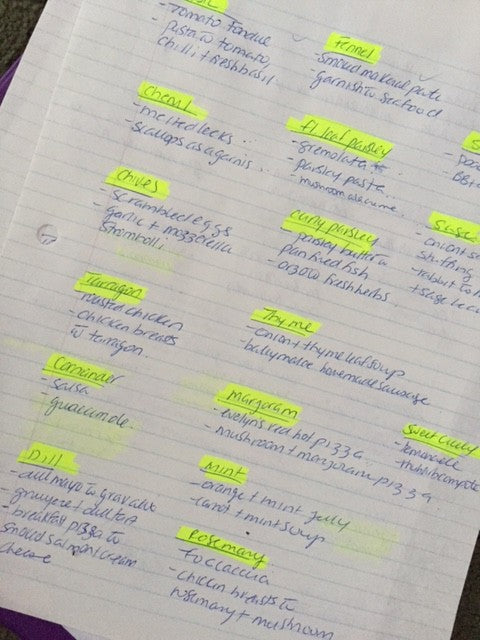 - Tomato Fondue
- pasta w tomato,
chilli + fresh basil
Chervil
- melted leeks
- scallops as a garnis...
Chives
- scrambled eggs
garlic + mozzerella
Stromboli
Tarragon
- roasted chicken
- chicken breasts
w tarragon
Coriander
- salsa
- guacamole
Dill
- dill mayo w gravalax
gruyere + dill tart
- breakfast pizza w
smoked salmon + cream
cheese
Fennel
- smoked mackerel pate
- garnish w seafood
fl leaf parsley
- gremolata
- parsley pasta
- mushroom a la creme
curly parsley
- parsley butter w
pan fried fish
- orzo w fresh herbs
Thyme
- onion + thyme leaf soup
- ballymaloe homemade sausage
Marjoram
- evelyns red hot pizza
- mushroom + marjoram pizza
Mint
- orange + mint jelly
- carrot + mint soup
Rosemary
focaccia
- chicken breasts w
rosemary + mushroom
- onion + s
stuffing
- rabbit
+ sage
Sweet Cicely
- lemonade
- rhubarb compote